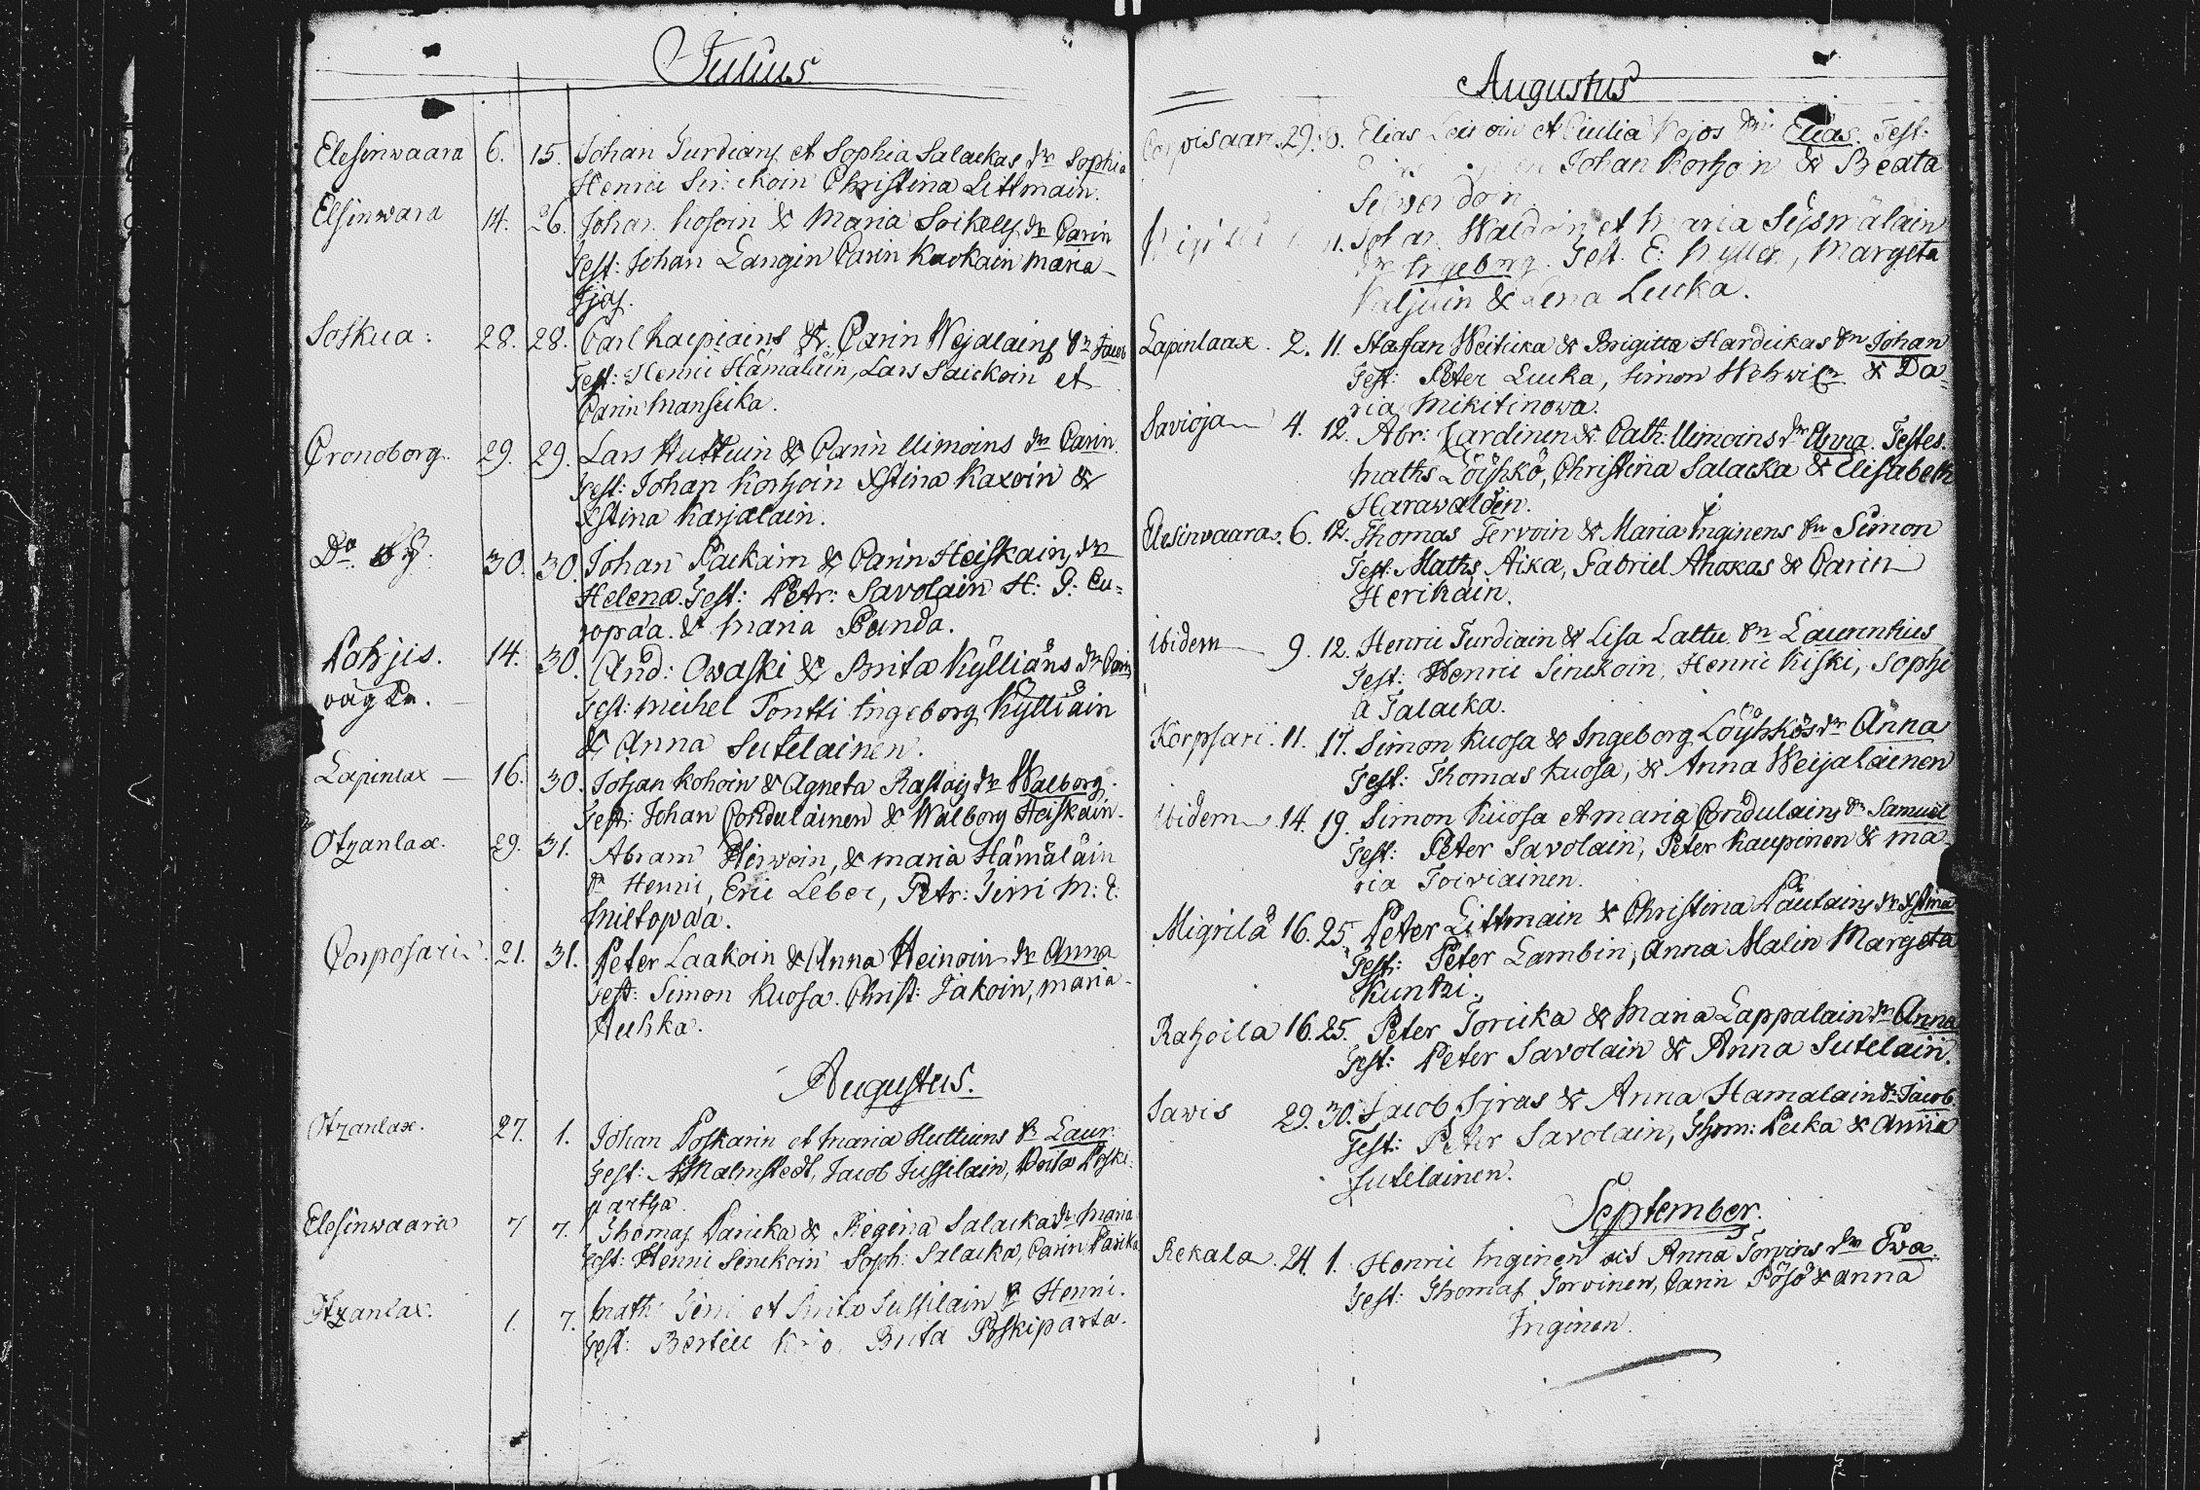 Julius
Elesinwaara 6. 15. Johan Turdians et Sophia Salackas dr Sophia
Henric Sinckoin Christina Littmain.
Elsinwara 14. 26. Johan Kosoin & Maria Soikels dr Carin
Test: Johan Langin Carin Kaokain Maria
Soskua: 28. 28. Carl Kaipiains & Carin Wejalains Sn Jacob
Test: Henric Hämäläin, Lars Saickoin et
Carin Mansicka.
Cronoborg. 29. 29. Lars Huttuin & Carin Uimoins dr Carin
Test: Johan Korhoin Xstina Kaxoin &
Xstina Karjalain.
Do 30. 30. Johan Packain & Carin Heiskains dr
Helena. Test: Petr: Savolain H: G: Eu=
ropæa. & Maria Panda.
Pohjis. 14. 30. And: Owaski & Brita Kylliäns dr Carin
Test: Michel Tontti Ingeborg Kylliäin
& Anna Sutelainen.
Lapinlax 16. 30. Johan Kohoin & Agneta Rastas dr Walborg.
Test: Johan Condulainen & Walborg Heiskain.
Otzanlax. 29. 31. Abram Hirwoin, & Maria Hämäläin
Sn Henric, Eric Leber, Petr: Jerri M: E:
Mieltopæa.
Corposari 21. 31. Peter Laakoin & Anna Heinoin dr Anna
Test: Simon Kuosa. Christ: Jakoin, Maria
Auhka.
Augustus.
Otzanlax. 27. 1. Johan Poskarin et Maria Huttuins Sn Laur:
Test: Malmstedt, Jacob Jussilain, Brita Poski
partha.
Elesinwaara 7 7. Thomas Paricka & Regina Salacka dr Maria
Test: Henric Sinckoin Soph: Salacka, Carin Paricka
Otzanlax. 1. 7. Math: Jerri et Brita Jussilain Sn Henric.
Test: Bertill Brita Poskiparta.
Augustus
29. 8. Elias et Cicilia Kejos Sn Elias. Test:
Johan Korhoin & Beata
11. Johan Waldoin et Maria Sysmäläin
dr Ingeborg. Test. E: Myller, Margeta
Kaljuin & Lena Lucka.
Lapinlaax. 2. 11. Stafan Weiticka & Brigitta Hardickas Sn Johan
Test: Peter Lucka, Simon Wehwiln & Da=
ria Mikitinowa.
Savioja 4. 12. Abr: Kardinen & Cath: Uimoins dr Anna. Testes.
Maths Löyhkö, Christina Salacka & Elisabeth
Harawalden.
Elesinvaara. 6. 12. Thomas Tervoin & Maria Inginens Sn Simon
Test: Maths Aika, Gabriel Ahokas & Carin
Herikain.
ibidem 9. 12. Henric Turdiain & Lisa Lattu Sn Laurentius
Test: Henric Sinckoin, Henric Kiski, Sophi
a Talacka.
Korpsari. 11. 17. Simon Kuosa & Ingeborg Löyhkös dr Anna
Test: Thomas Kuosa, & Anna Weijalainen
ibidem 14. 19. Simon Kuosa et Maria Condulains Sn Samuel
Test: Peter Savolain, Peter Kaupinen & Ma=
ria Toiviainen.
Migrilä 16. 25. Peter Littmain & Christina Pautains dr Xstina
Test: Peter Lambin, Anna Malin Margeta
Kuntzi.
Rahoila 16. 25. Peter Toricka & Maria Lappalain dr Anna
Test: Peter Savolain & Anna Sutelain.
Sawis 29. 30. Jacob Siras & Anna Hamalain Sn Jacob
Test: Peter Savolain, Thom: Pecka & Anna
Sutelainen.
September.
Rekala. 24. 1. Henric Inginen et Anna Torvins dr Ewa.
Test: Thomas Torvinen, Carin Pösö & Anna
Inginen.